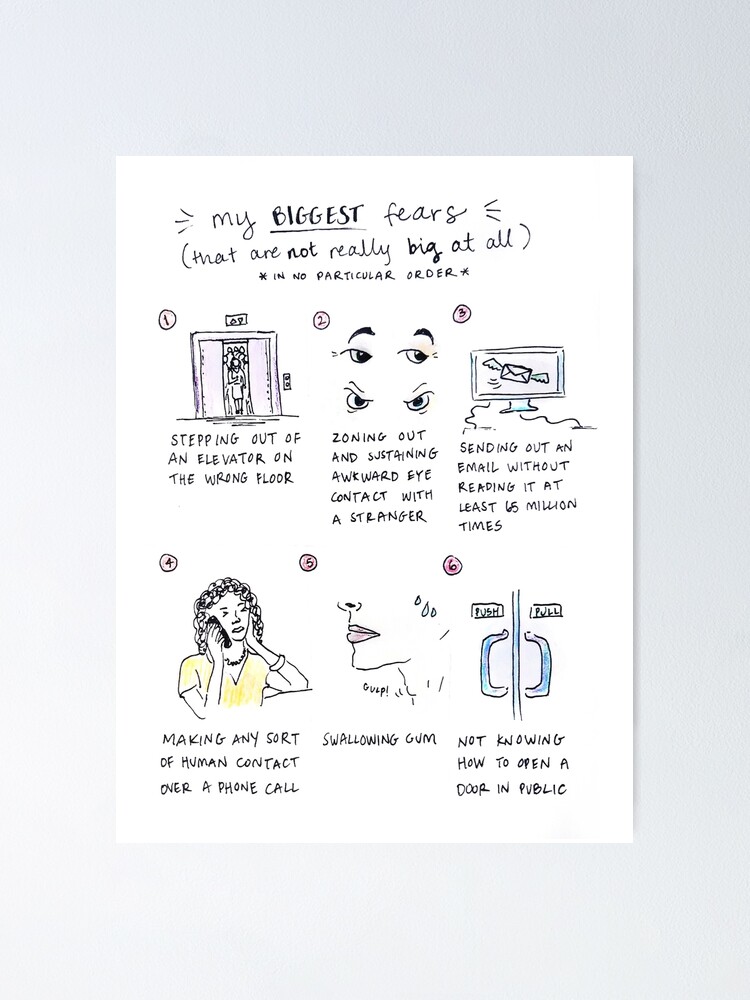 my BIGGEST fears
(that are not really big at all)
* IN NO PARTICULAR ORDER *
1
STEPPING OUT OF
AN ELEVATOR ON
THE WRONG FLOOR
2
ZONING OUT
AND SUSTAINING
AWKWARD EYE
CONTACT WITH
A STRANGER
3
SENDING OUT AN
EMAIL WITHOUT
READING IT AT
LEAST 65 MILLION
TIMES
4
MAKING ANY SORT
OF HUMAN CONTACT
OVER A PHONE CALL
5
GULP!
SWALLOWING GUM
6
PUSH PULL
NOT KNOWING
HOW TO OPEN A
DOOR IN PUBLIC